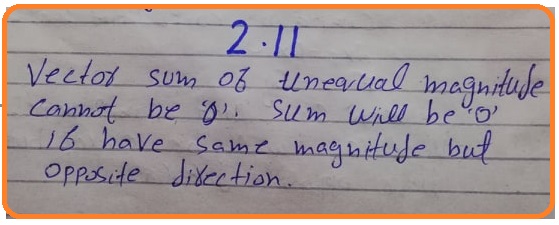 2.11
Vector sum of unequal magnitude
cannot be '0'. Sum will be '0'
if have same magnitude but
opposite direction.